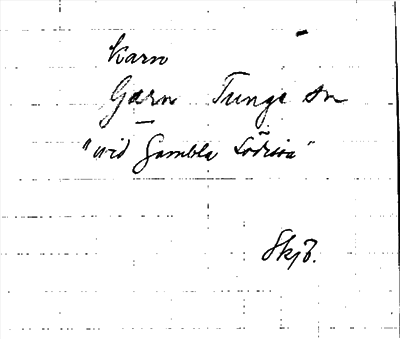 Karn
Garn Tunge sn
"vid Gambla Lödisa"
Skjb.